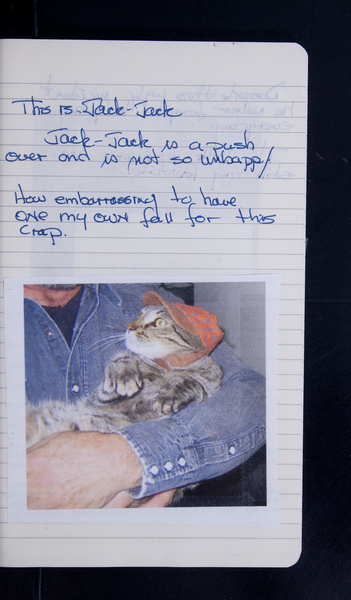 This is Jack-Jack
Jack-Jack is a push
over and is not so unhappy!
How embarrassing to have
one my own fall for this
crap.